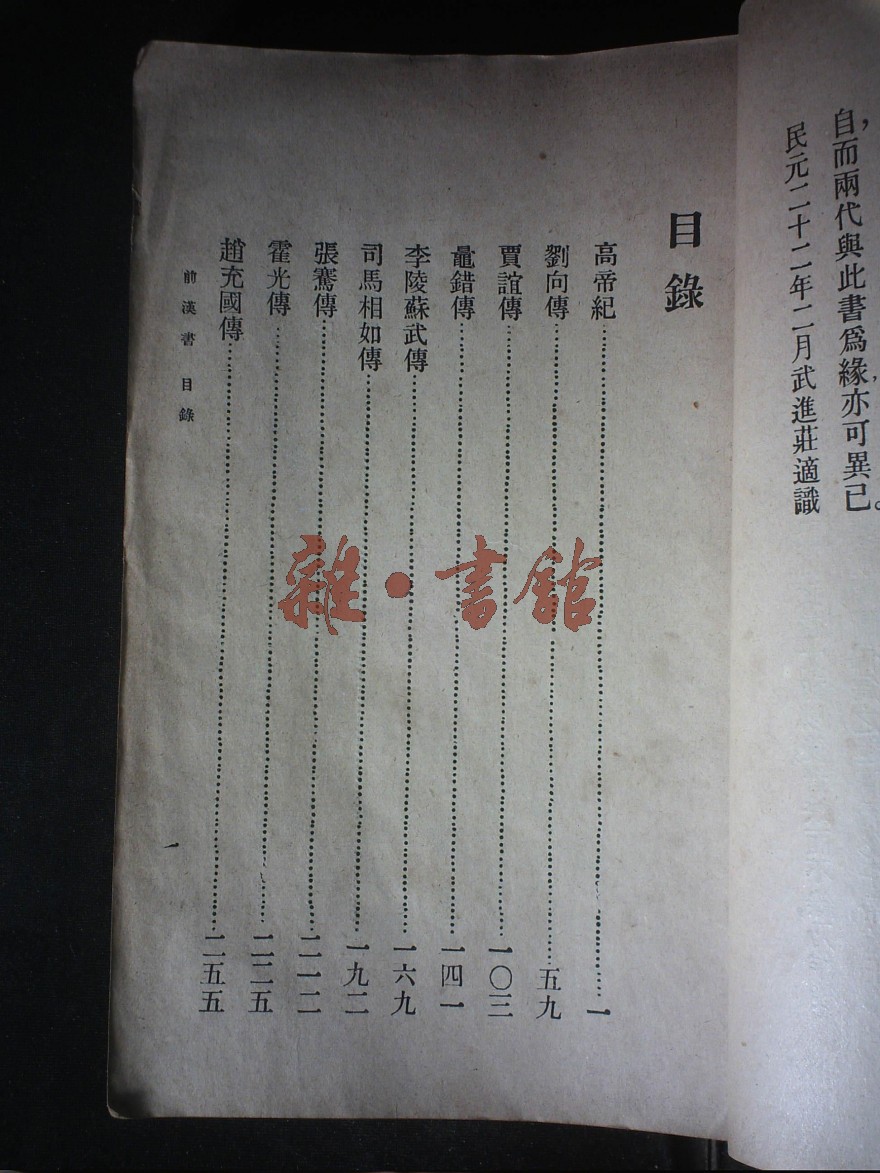 自而兩代與此書爲緣，亦可異已。
民元二十二年二月武進莊適識
目錄
高帝紀……一
劉向傳……五九
賈誼傳……一〇三
鼂錯傳……一四一
李陵蘇武傳……一六九
司馬相如傳……一九二
張騫傳……二一二
霍光傳……二二五
趙充國傳……二五五
前漢書 目錄
一
雜·書館